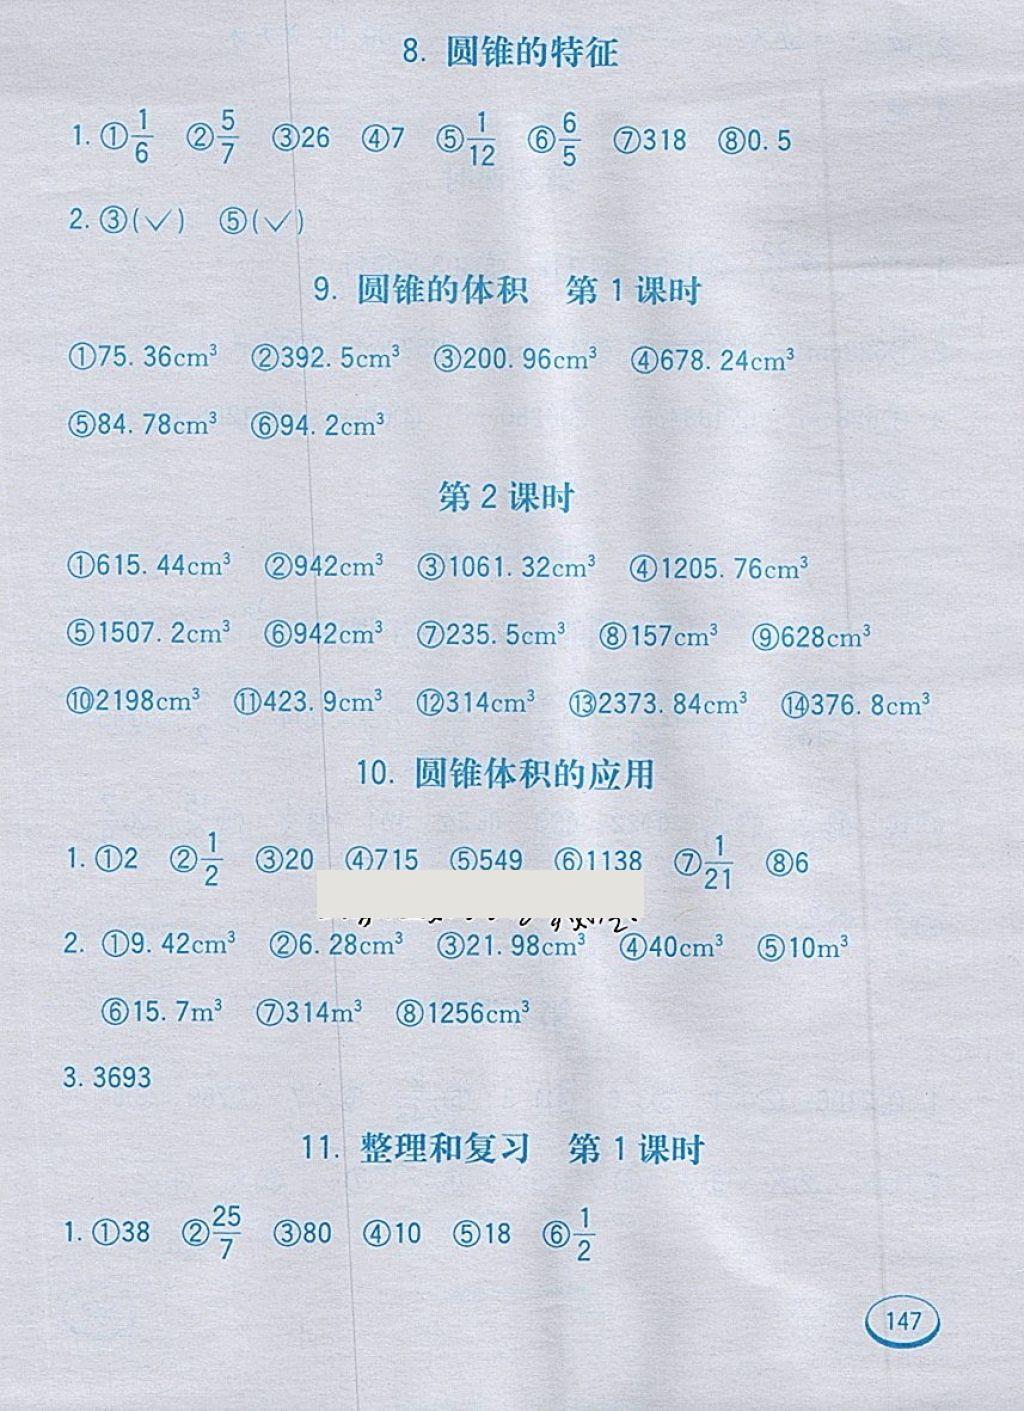 8. 圆锥的特征
1. ①1/6 ②5/7 ③26 ④7 ⑤1/12 ⑥6/5 ⑦318 ⑧0.5
2. ③(✓) ⑤(✓)
9. 圆锥的体积 第1课时
①75.36cm³ ②392.5cm³ ③200.96cm³ ④678.24cm³
⑤84.78cm³ ⑥94.2cm³
第2课时
①615.44cm³ ②942cm³ ③1061.32cm³ ④1205.76cm³
⑤1507.2cm³ ⑥942cm³ ⑦235.5cm³ ⑧157cm³ ⑨628cm³
⑩2198cm³ ⑪423.9cm³ ⑫314cm³ ⑬2373.84cm³ ⑭376.8cm³
10. 圆锥体积的应用
1. ①2 ②1/2 ③20 ④715 ⑤549 ⑥1138 ⑦1/21 ⑧6
2. ①9.42cm³ ②6.28cm³ ③21.98cm³ ④40cm³ ⑤10m³
⑥15.7m³ ⑦314m³ ⑧1256cm³
3. 3693
11. 整理和复习 第1课时
1. ①38 ②25/7 ③80 ④10 ⑤18 ⑥1/2
147